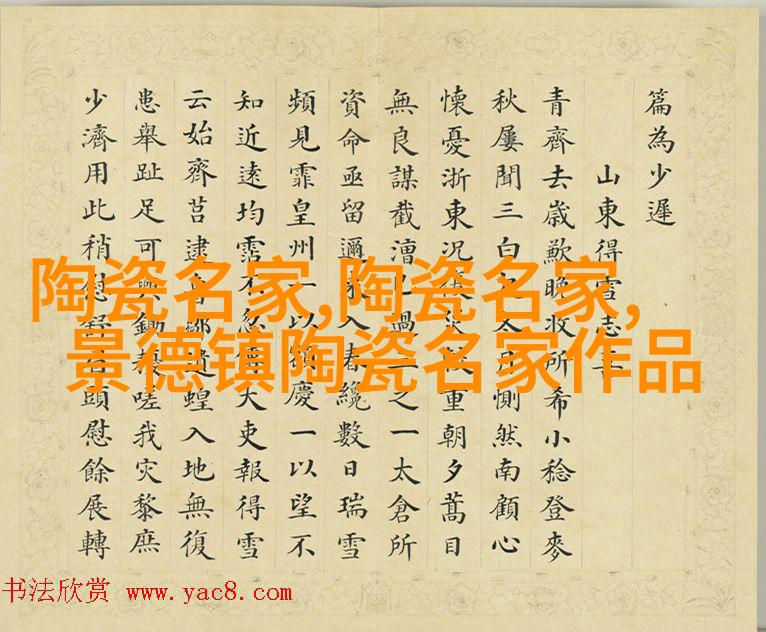 篇為少遲
山東得雪志
青齊去歲歉晚收所希小稔登麥
秋屢聞三白太月惻然南顧心
懷憂浙東况重朝夕蒿目
無良謀截漕已過之一太倉所
資命亟留邇入春纔數日瑞雪
頻見霏皇州一以額慶一以望不
知近遠均霑不忽傳大吏報得雪
云始齊莒逮鄒遺蝗入地無復
患舉趾足可興鋤耰嗟我灾黎庶
少濟用此稍慰頭慰餘展轉
陶瓷名家,陶瓷名家,
景德镇陶瓷名家作品
书法欣赏 www.yac8.com